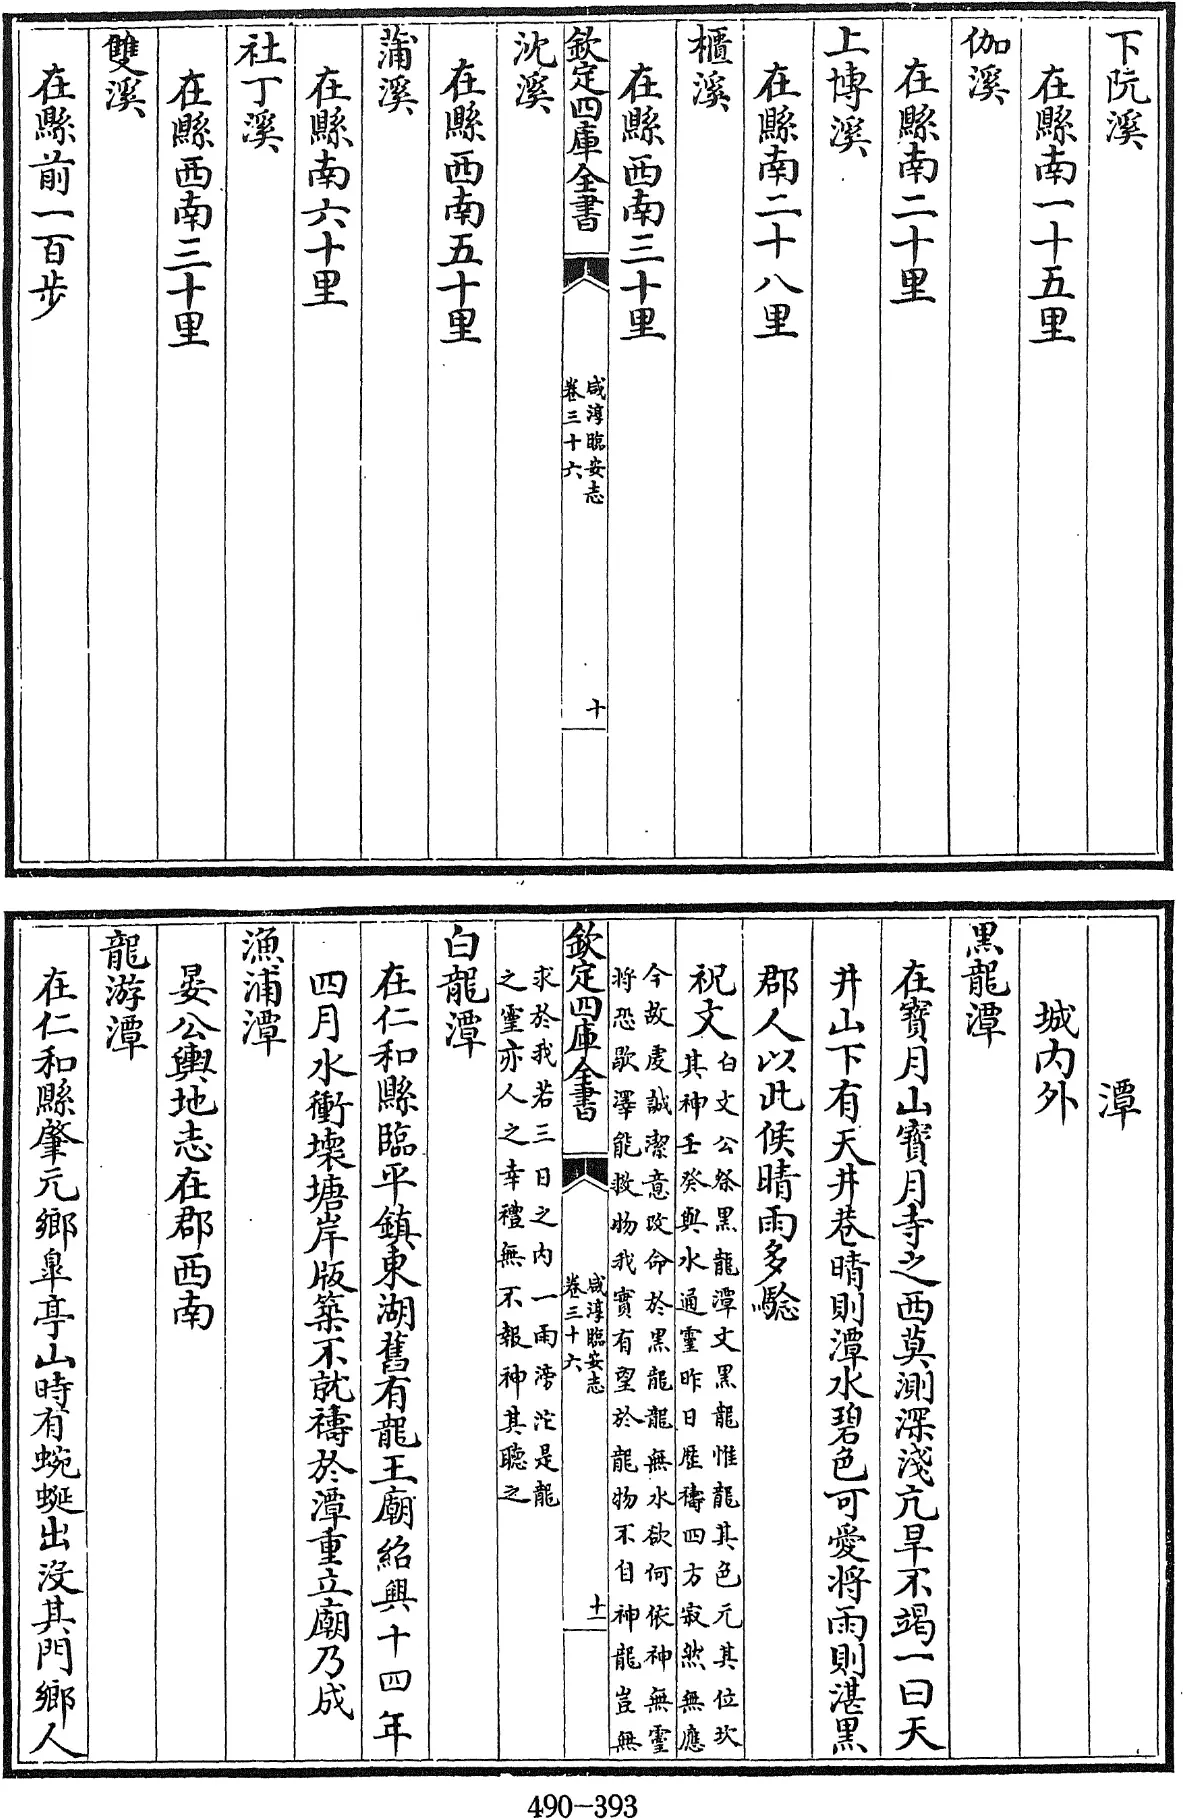 下阮溪
在縣南一十五里
伽溪
在縣南二十里
上博溪
在縣南二十八里
櫃溪
在縣西南三十里
欽定四庫全書
咸淳臨安志
卷三十六
十
沈溪
在縣西南五十里
蒲溪
在縣南六十里
社丁溪
在縣西南三十里
雙溪
在縣前一百步
潭
城內外
黑龍潭
在寶月山寶月寺之西莫測深淺亢旱不竭一曰天
井山下有天井巷晴則潭水碧色可愛將雨則湛黑
郡人以此候晴雨多驗
祝文
白文公祭黑龍潭文黑龍惟龍其色元其位坎
其神壬癸與水通靈昨日歷禱四方寂然無應
今故虔誠潔意改命於黑龍龍無水欲何依神無靈
將恐歇澤能救物我實有望於龍物不自神龍豈無
欽定四庫全書
咸淳臨安志
卷三十六
十一
求於我若三日之內一雨滂沱是龍
之靈亦人之幸禮無不報神其聽之
白龍潭
在仁和縣臨平鎮東湖舊有龍王廟紹興十四年
四月水衝壞塘岸版築不就禱於潭重立廟乃成
漁浦潭
晏公輿地志在郡西南
龍游潭
在仁和縣肇元鄉臯亭山時有蜿蜒出沒其門鄉人
490-393